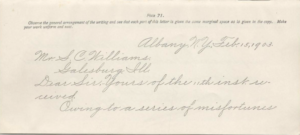 PLATE 71.
Observe the general arrangement of the writing and see that each part of the letter is given the same marginal space as is given in the copy. Make your work uniform and neat.
Albany N.Y. Feb
Mr. S. C. Williams
Galesburg Ill
Dear Sir: Yours of the 11th inst re
ceived
Owing to a series of misfortunes